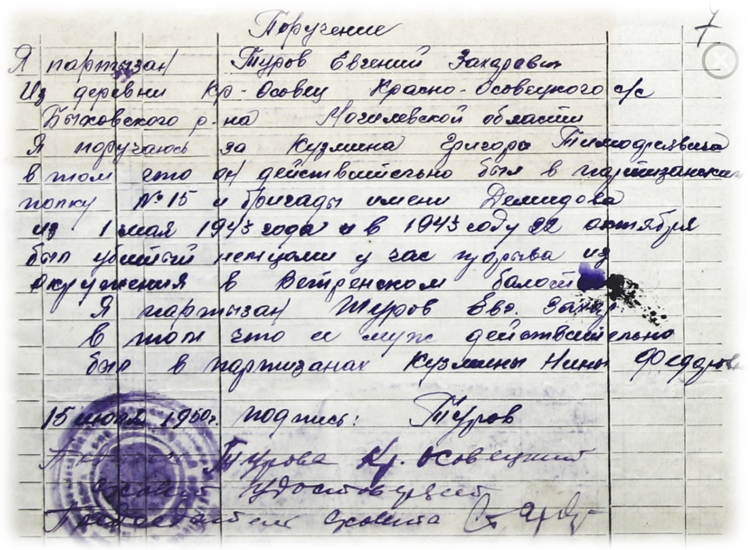 Поручение
7
Я партызан Туров Евгений Захаревич
Из деревни Кр-Осовец Красно-Осовецкого с/с
Быховского р-на Могилевской области
Я поручаюсь за Кузмина Григора Тимофеевича
в том что он действительно был в партизанским
полку №15 и бригады имени Демидова
из 1 мая 1943 года и в 1943 году 22 октября
был убитый немцами у час прдрыва из
окружения в Ветренском балоте
Я партызан Туров Евг. Захар
в том что и муж действительно
был в партизанах Кузмины Нины Федоровн
15 июля 1950г. подпись: Туров
Турова Кр. Осовецкий
удостоверяет
Председатель совета